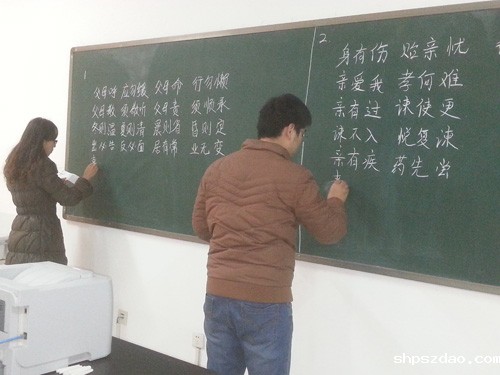 1
父母呼 应勿缓 父母命 行勿懒
父母教 须敬听 父母责 须顺承
冬则温 夏则清 晨则省 昏则定
出必告 反必面 居有常 业无变
2
身有伤 贻亲忧
亲爱我 孝何难
亲有过 谏使更
谏不入 悦复谏
亲有疾 药先尝
shpszdao.com